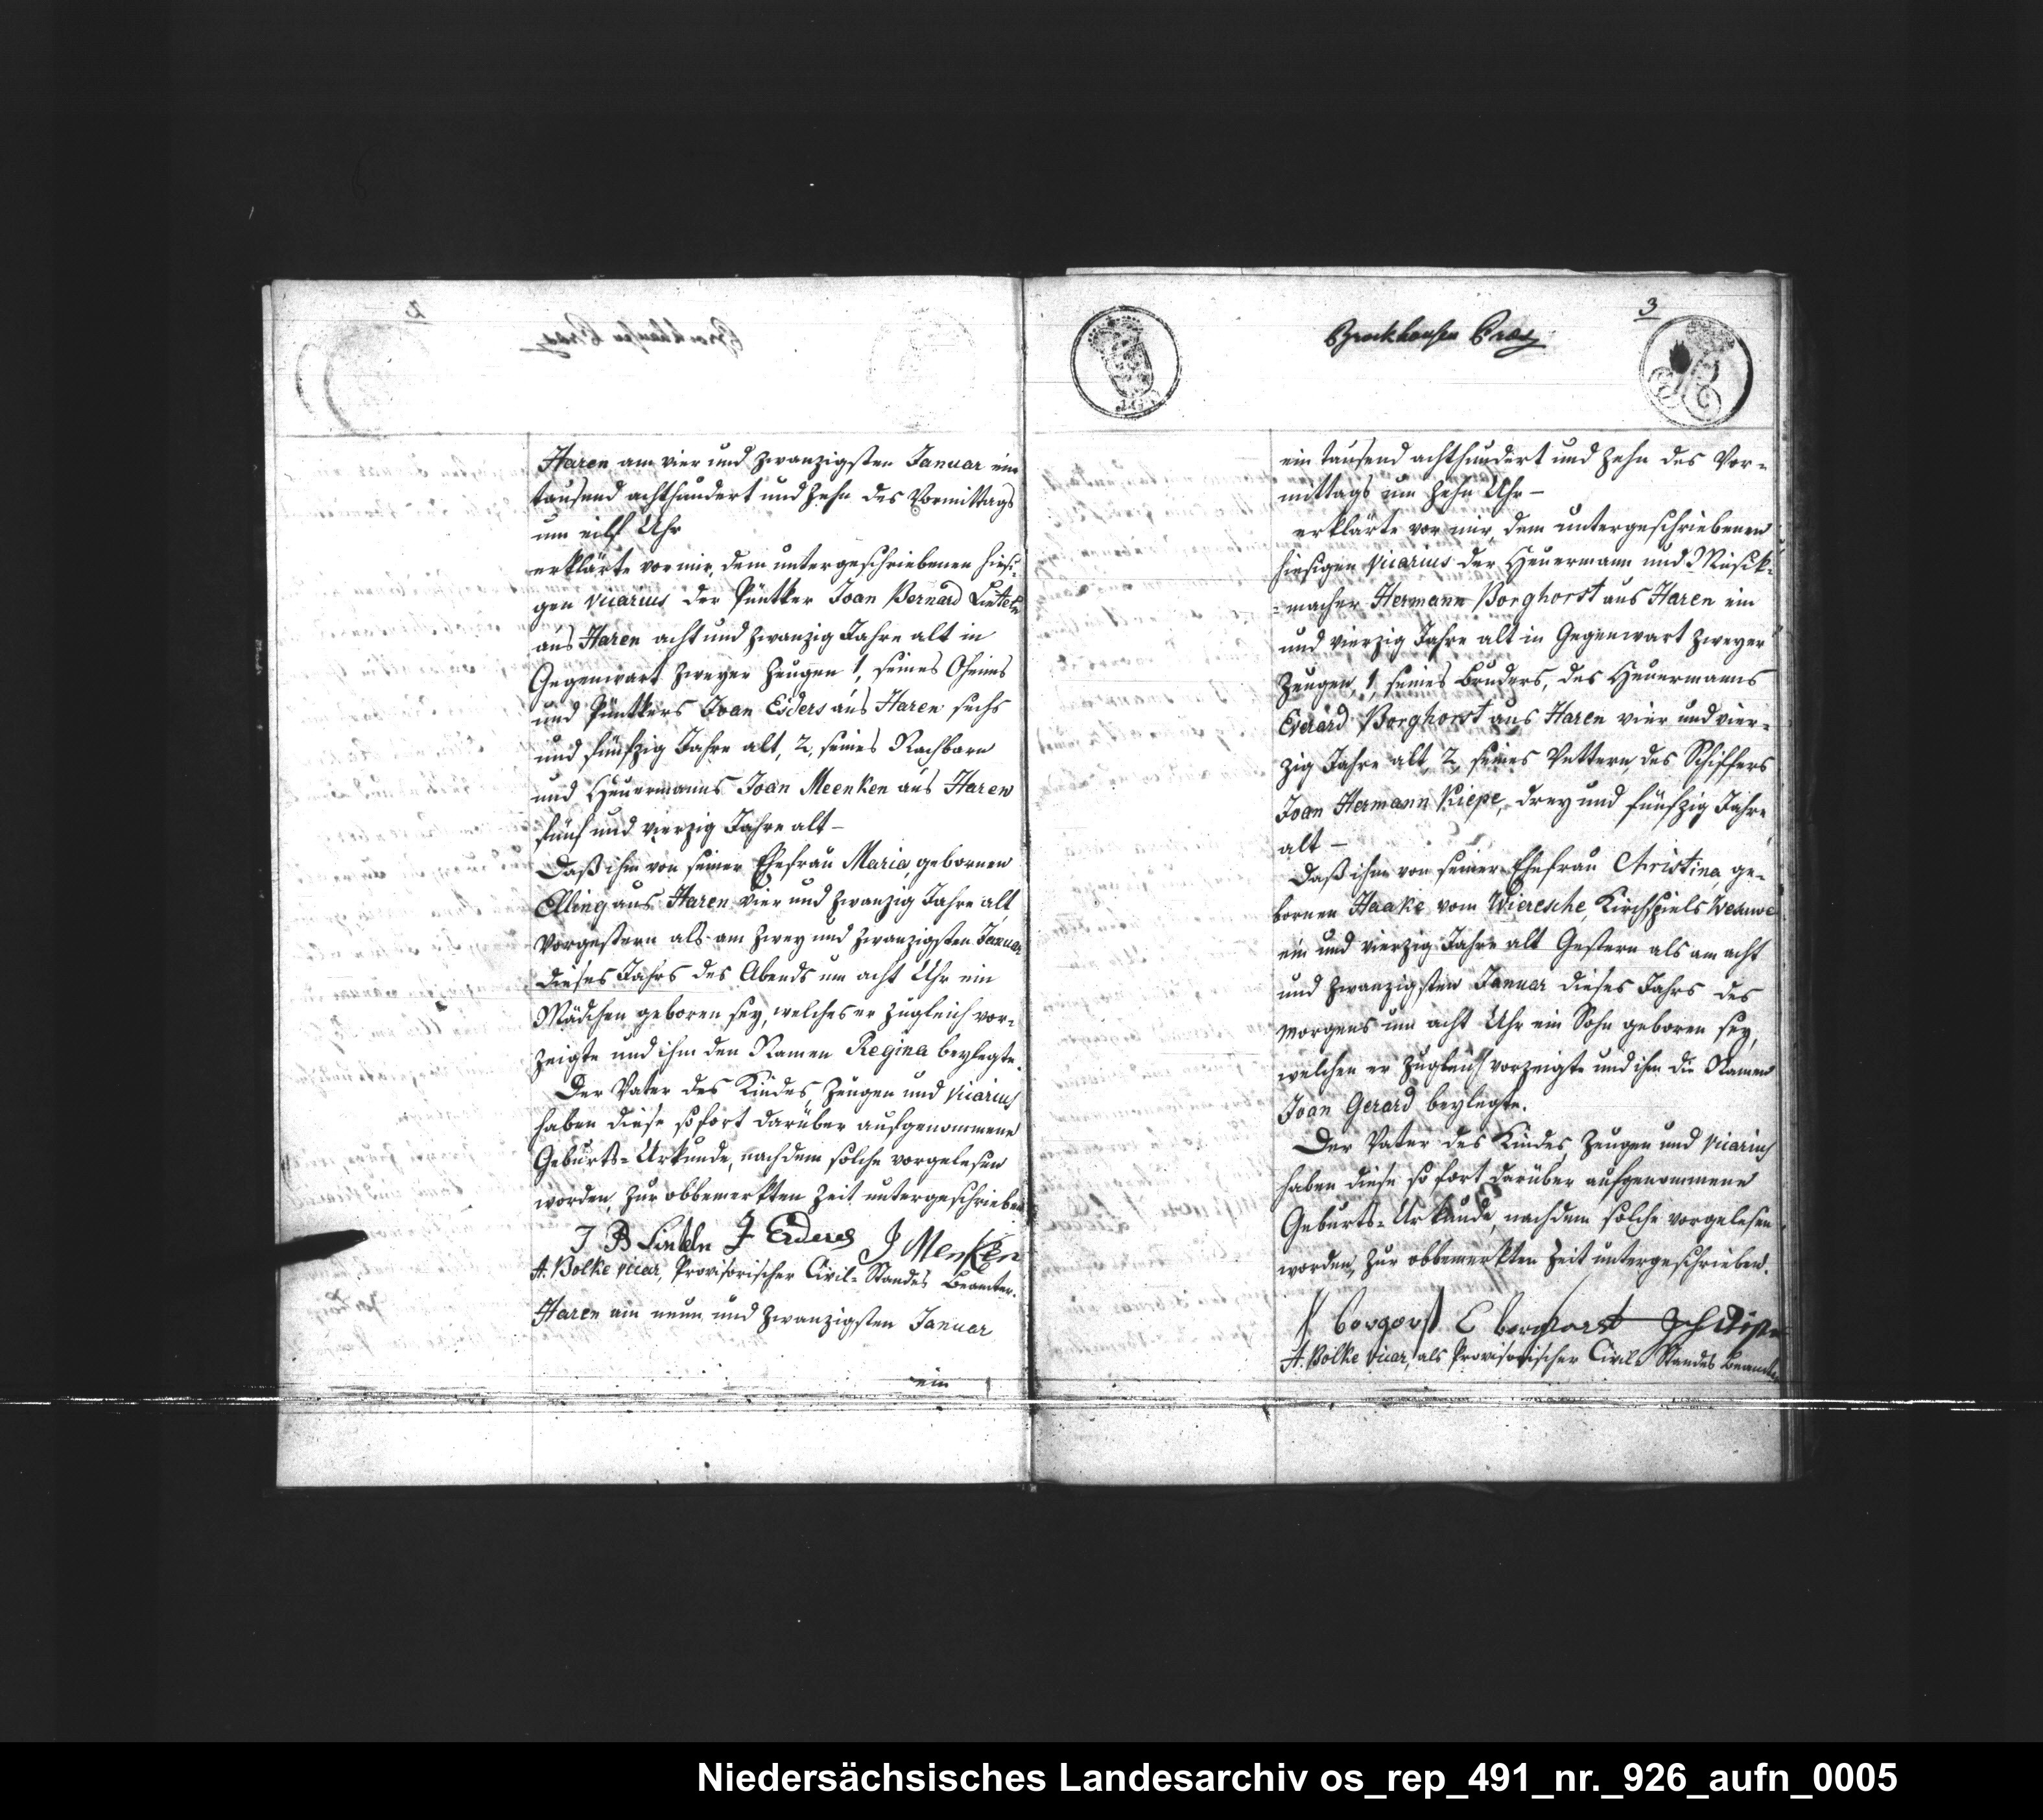 Haren am vier und zwanzigsten Januar ein
tausend achthundert und zehn des Vormittags
um eilf Uhr
erklärte vor mir, dem untergeschriebenen hiesi-
gen Vicarius der Püntker Joan Bernard
aus Haren acht und zwanzig Jahre alt in
Gegenwart zweyer Zeugen 1, seines Oheims
und Püntkers Joan Esders aus Haren sechs
und fünfzig Jahre alt, 2, seines Nachbarn
und Heuermanns Joan Meenken aus Haren
fünf und vierzig Jahre alt –
Daß ihm von seiner Ehefrau Maria, gebornen
Elling aus Haren vier und zwanzig Jahre alt
vorgestern als am zwey und zwanzigsten Januar
dieses Jahrs des Abends um acht Uhr ein
Mädchen geboren sey, welches er zugleich vor-
zeigte und ihm den Namen Regina beylegte.
Der Vater des Kindes, Zeugen und Vicarius
haben diese sofort darüber aufgenommene
Geburts-Urkunde, nachdem solche vorgelesen
worden, zur obbemerkten Zeit untergeschrieben
J B J Menken
A. Bölke vicar, Provisorischer Civil-Standes Beamter.
Haren am neun und zwanzigsten Januar
ein
3
Brockhausen
ein tausend achthundert und zehn des Vor-
mittags um zehn Uhr –
erklärte vor mir, dem untergeschriebenen
hiesigen Vicarius der Heuermann und Musik-
-macher Hermann Borghorst aus Haren ein
und vierzig Jahre alt in Gegenwart zweyer
Zeugen, 1, seines Bruders, des Heuermanns
Everard Borghorst aus Haren vier und vier-
zig Jahre alt, 2, seines Vettern, des Schiffers
Joan Hermann Kiepe, drey und fünfzig Jahre
alt –
Daß ihm von seiner Ehefrau Christina, ge-
bornen Haake vom Wieresche, Kirchspiels Wesuwe
ein und vierzig Jahre alt Gestern als am acht
und zwanzigsten Januar dieses Jahrs des
Morgens um acht Uhr ein Sohn geboren sey,
welchen er zugleich vorzeigte und ihm die Namen
Joan Gerard beylegte.
Der Vater des Kindes, Zeugen und Vicarius
haben diese so fort darüber aufgenommene
Geburts-Urkunde, nachdem solche vorgelesen
worden, zur obbemerkten Zeit untergeschrieben.
E borghorst
A. Bölke vicar, als Provisorischer Civil-Standes Beamter
Niedersächsisches Landesarchiv os_rep_491_nr._926_aufn_0005